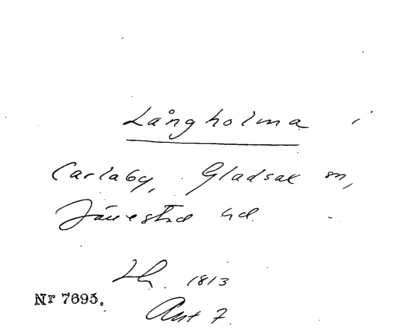 Långholma i
Carlaby, Gladsax sn,
Järrestad hd.
1813
Akt 7
Nr 7695.